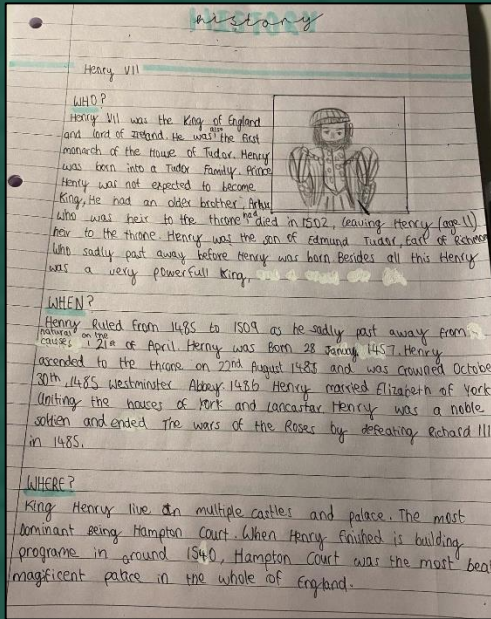 history
Henry VII
WHO?
Henry VII was the King of England
and lord of Ireland. He was also the first
monarch of the House of Tudor. Henry
was born into a Tudor Family. Prince
Henry was not expected to become
King, He had an older brother, Arthur
who was heir to the throne had died in 1502, leaving Henry (age 11)
heir to the throne. Henry was the son of Edmund Tudor, Earl of Richmon
Who sadly past away before Henry was born. Besides all this Henry
was a very powerfull King,
WHEN?
Henry Ruled from 1485 to 1509 as he sadly past away from
natural causes on the 21st of April. Henry was Born 28 January, 1457. Henry
ascended to the throne on 22nd August 1485 and was crowned Octobe
30th, 1485 Westminster Abbey. 1486 Henry married Elizabeth of York
Uniting the houses of York and Lancastar. Henry was a noble
and ended The wars of the Roses by defeating Richard III
in 1485.
WHERE?
King Henry live in multiple castles and palace. The most
Dominant Being Hampton Court. When Henry finished is building
programe in around 1540, Hampton Court was the most bea
magificent palace in the whole of England.